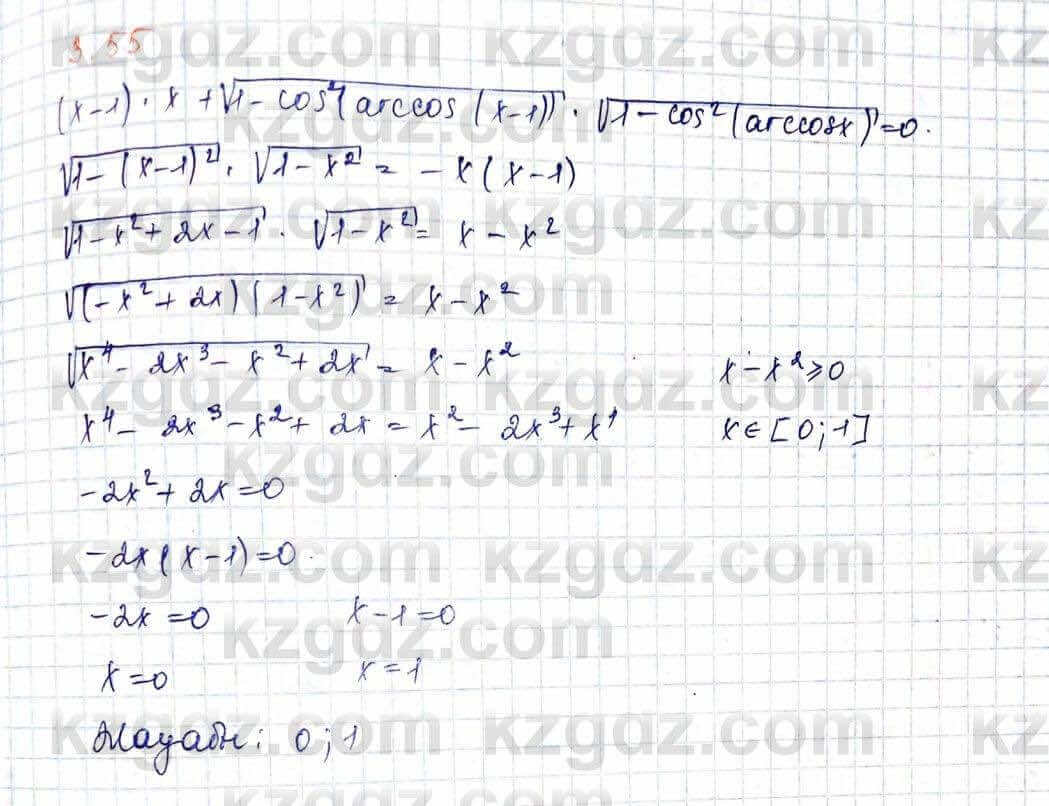 3.55
(x-1)·x+√(1-cos²(arccos(x-1)))·√(1-cos²(arccosx))=0.
√(1-(x-1)²)·√(1-x²)=-x(x-1)
√(1-x²+2x-1)·√(1-x²)=x-x²
√((-x²+2x)(1-x²))=x-x²
√(x⁴-2x³-x²+2x)=x-x² x-x²≥0
x⁴-2x³-x²+2x=x²-2x³+x⁴ x∈[0;1]
-2x²+2x=0
-2x(x-1)=0.
-2x=0 x-1=0
x=0 x=1
Жауабы: 0;1
kzgdz.com